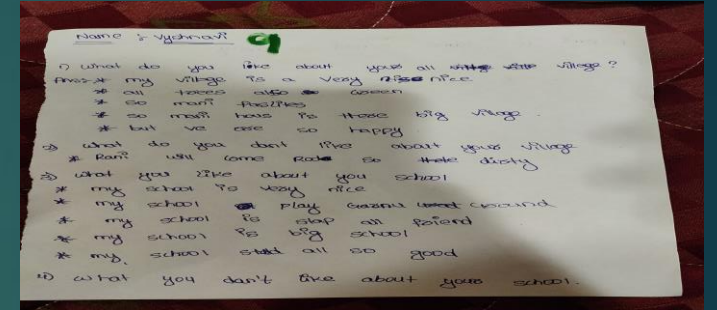 Name : Vychnavi 9
1) what do you like about your all village?
Ans:- * my village is a very nice
* all trees also Green
* so mani
* so mani hous is there big village.
* but ve are so happy
2) what do you dont like about your village
* Rani will come Rode so dirty
3) what you like about you school
* my school is very nice
* my school play Ground
* my school is all friend
* my school is big school
* my school all so good
4) what you dan't like about your school.